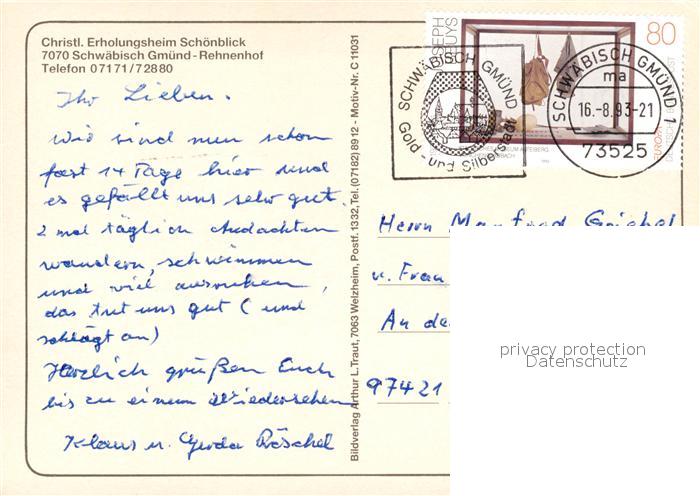 Christl. Erholungsheim Schönblick
7070 Schwäbisch Gmünd - Rehnenhof
Telefon 07171/72880
Ihr Lieben.
Wir sind nun schon
fast 14 Tage hier und
es gefällt uns sehr gut.
2 mal täglich Andachten
wandern, schwimmen
und viel ausruhen,
das tut uns gut (und
schlägt an)
Herzlich grüßen Euch
bis zu einem Wiedersehen
Klaus u. Gerda Röschel
Bildverlag Arthur L. Traut, 7063 Welzheim, Postf. 1332, Tel. (07182) 8912 - Motiv-Nr. C 11031
SCHWÄBISCH GMÜND
Gold
-und Silberstadt
JOSEPH
BEUYS
80
DEUTSCHE BUNDESPOST
EUROPA
SCHWÄBISCH GMÜND 1
ma
16.-8.93-21
73525
Herrn Manfred
u. Frau
An de
97421
privacy protection
Datenschutz